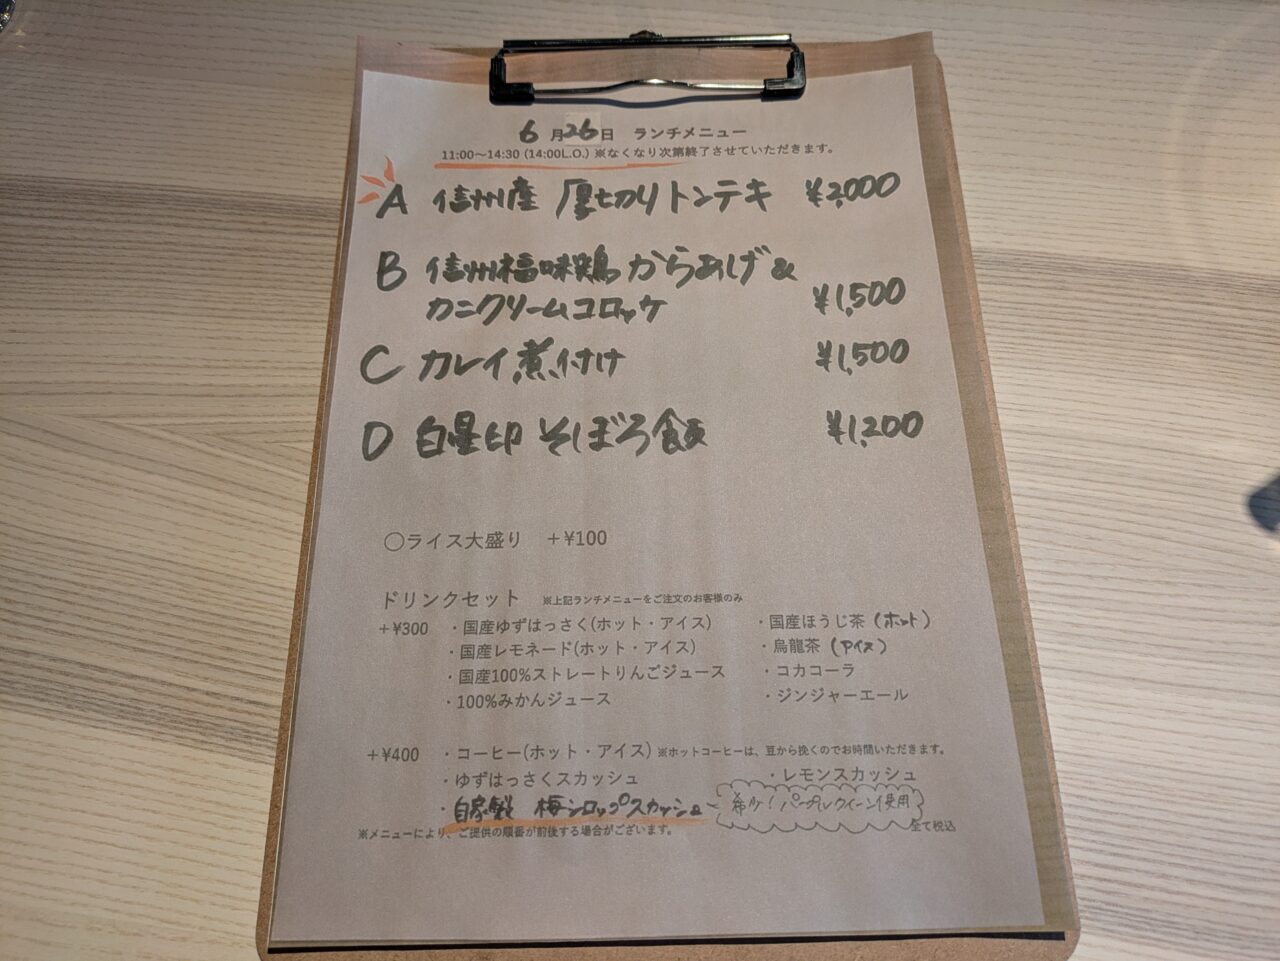 6月26日 ランチメニュー
11:00～14:30 (14:00L.O.) ※なくなり次第終了させていただきます。
A 信州産 厚切りトンテキ ¥2,000
B 信州福味鶏からあげ&
カニクリームコロッケ ¥1,500
C カレイ煮付け ¥1,500
D 白星印 そぼろ飯 ¥1,200
○ライス大盛り +¥100
ドリンクセット ※上記ランチメニューをご注文のお客様のみ
+¥300 ・国産ゆずはっさく(ホット・アイス) ・国産ほうじ茶(ホット)
・国産レモネード(ホット・アイス) ・烏龍茶(アイス)
・国産100%ストレートりんごジュース ・コカコーラ
・100%みかんジュース ・ジンジャーエール
+¥400 ・コーヒー(ホット・アイス) ※ホットコーヒーは、豆から挽くのでお時間いただきます。
・ゆずはっさくスカッシュ ・レモンスカッシュ
・自家製 梅シロップスカッシュ 希少!パープルクイーン使用
※メニューにより、ご提供の順番が前後する場合がございます。 全て税込